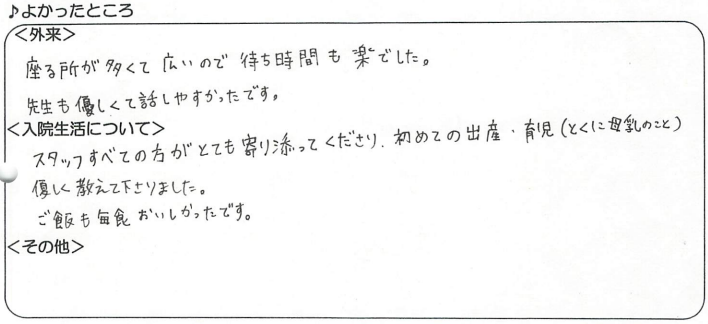 ♪よかったところ
＜外来＞
座る所が多くて広いので待ち時間も楽でした。
先生も優しくて話しやすかったです。
＜入院生活について＞
スタッフすべての方がとても寄り添ってくださり、初めての出産・育児(とくに母乳のこと)
優しく教えて下さりました。
ご飯も毎食おいしかったです。
＜その他＞